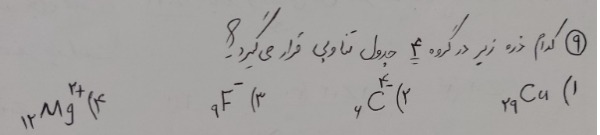 ۹) کدام ذره زیر در گروه ۴ جدول تناوبی قرار می‌گیرد؟
۱) ₂₉Cu ۲) ₆C⁴⁻ ۳) ₉F⁻ ۴) ₁₂Mg²⁺